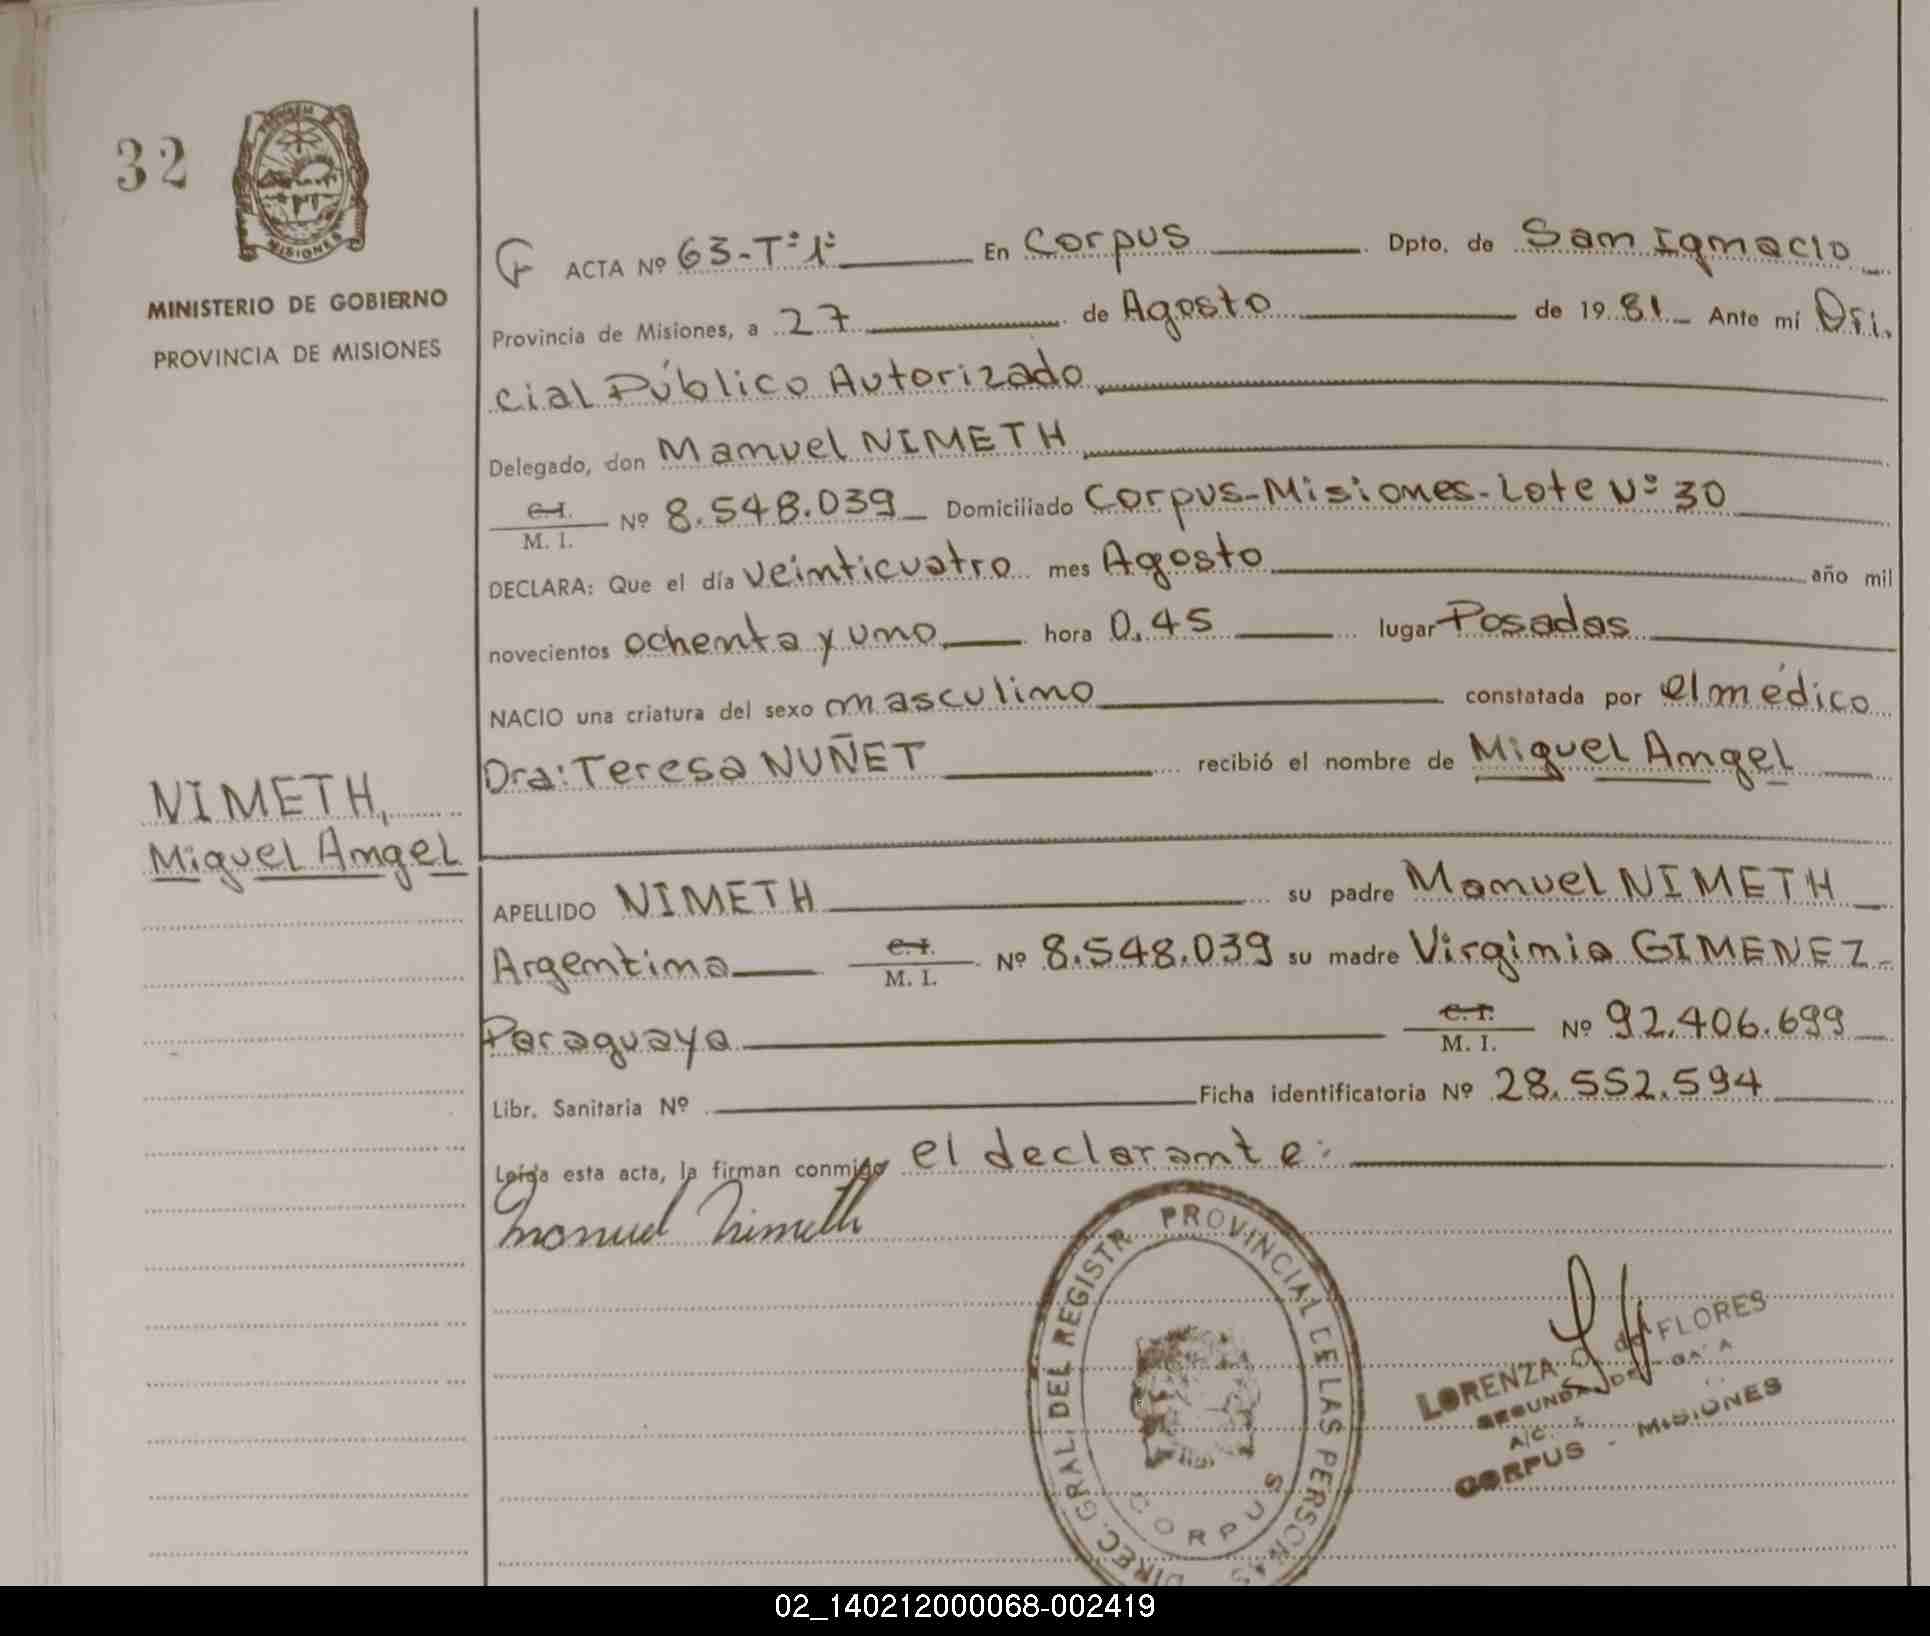 32
MISIONES
MINISTERIO DE GOBIERNO
PROVINCIA DE MISIONES
NIMETH,
Miguel Angel
ACTA Nº 63-Tº1º En Corpus Dpto. de San Ignacio
Provincia de Misiones, a 27 de Agosto de 1981 Ante mí Ofi.
cial Público Autorizado
Delegado, don Manuel NIMETH
C.I. M. I. Nº 8.548.039 Domiciliado Corpus-Misiones-Lote Nº 30
DECLARA: Que el día veinticuatro mes Agosto año mil
novecientos ochenta y uno hora 0.45 lugar Posadas
NACIO una criatura del sexo masculino constatada por el médico
Dra: Teresa NUÑET recibió el nombre de Miguel Angel
APELLIDO NIMETH su padre Manuel NIMETH
Argentina C.I. M. I. Nº 8.548.039 su madre Virginia GIMENEZ
Paraguaya C.I. M. I. Nº 92.406.699
Libr. Sanitaria Nº Ficha identificatoria Nº 28.552.594
Leída esta acta, la firman conmigo el declarante:
Manuel Nimeth
DIREC. GRAL. DEL REGISTR PROVINCIAL DE LAS PERSONAS
CORPUS
LORENZA de FLORES
SEGUNDA
A/C.
CORPUS - MISIONES
02_140212000068-002419